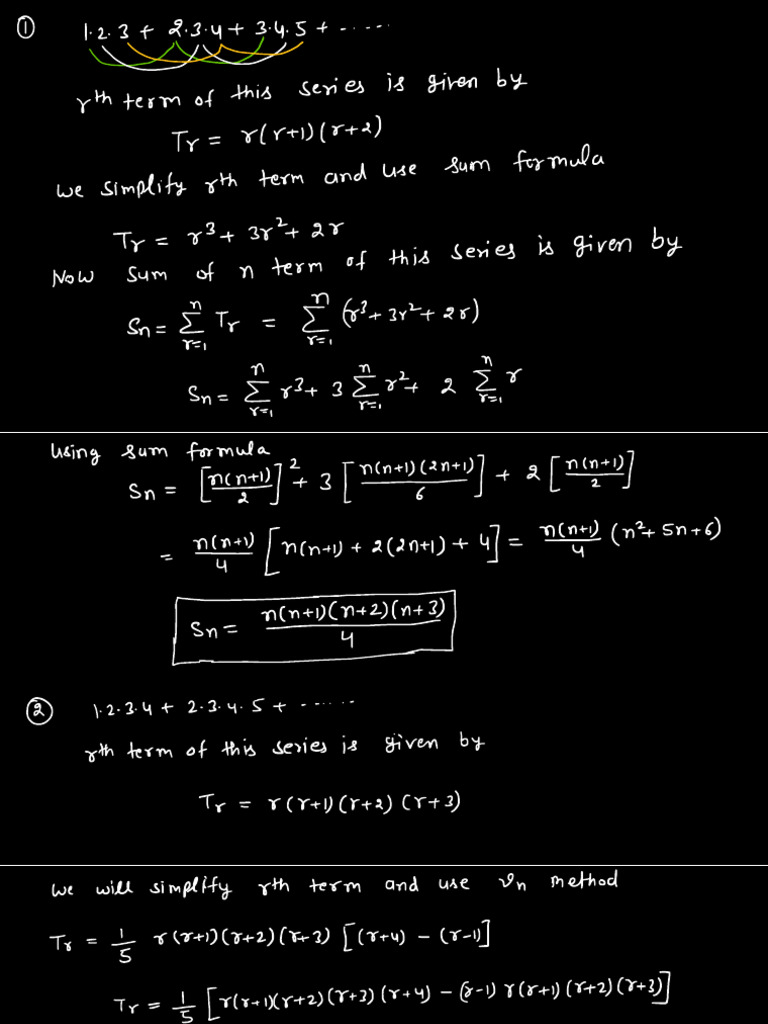 ① 1·2·3 + 2·3·4 + 3·4·5 + -----
rth term of this series is given by
Tr = r(r+1)(r+2)
we simplify rth term and use sum formula
Tr = r³ + 3r² + 2r
Now sum of n term of this series is given by
Sn = ∑_{r=1}^{n} Tr = ∑_{r=1}^{n} (r³ + 3r² + 2r)
Sn = ∑_{r=1}^{n} r³ + 3 ∑_{r=1}^{n} r² + 2 ∑_{r=1}^{n} r
using sum formula
Sn = [n(n+1)/2]² + 3 [n(n+1)(2n+1)/6] + 2 [n(n+1)/2]
= n(n+1)/4 [n(n+1) + 2(2n+1) + 4] = n(n+1)/4 (n² + 5n + 6)
Sn = n(n+1)(n+2)(n+3)/4
② 1·2·3·4 + 2·3·4·5 + ------
rth term of this series is given by
Tr = r(r+1)(r+2)(r+3)
we will simplify rth term and use vn method
Tr = 1/5 r(r+1)(r+2)(r+3) [(r+4) − (r−1)]
Tr = 1/5 [r(r+1)(r+2)(r+3)(r+4) − (r−1) r(r+1)(r+2)(r+3)]